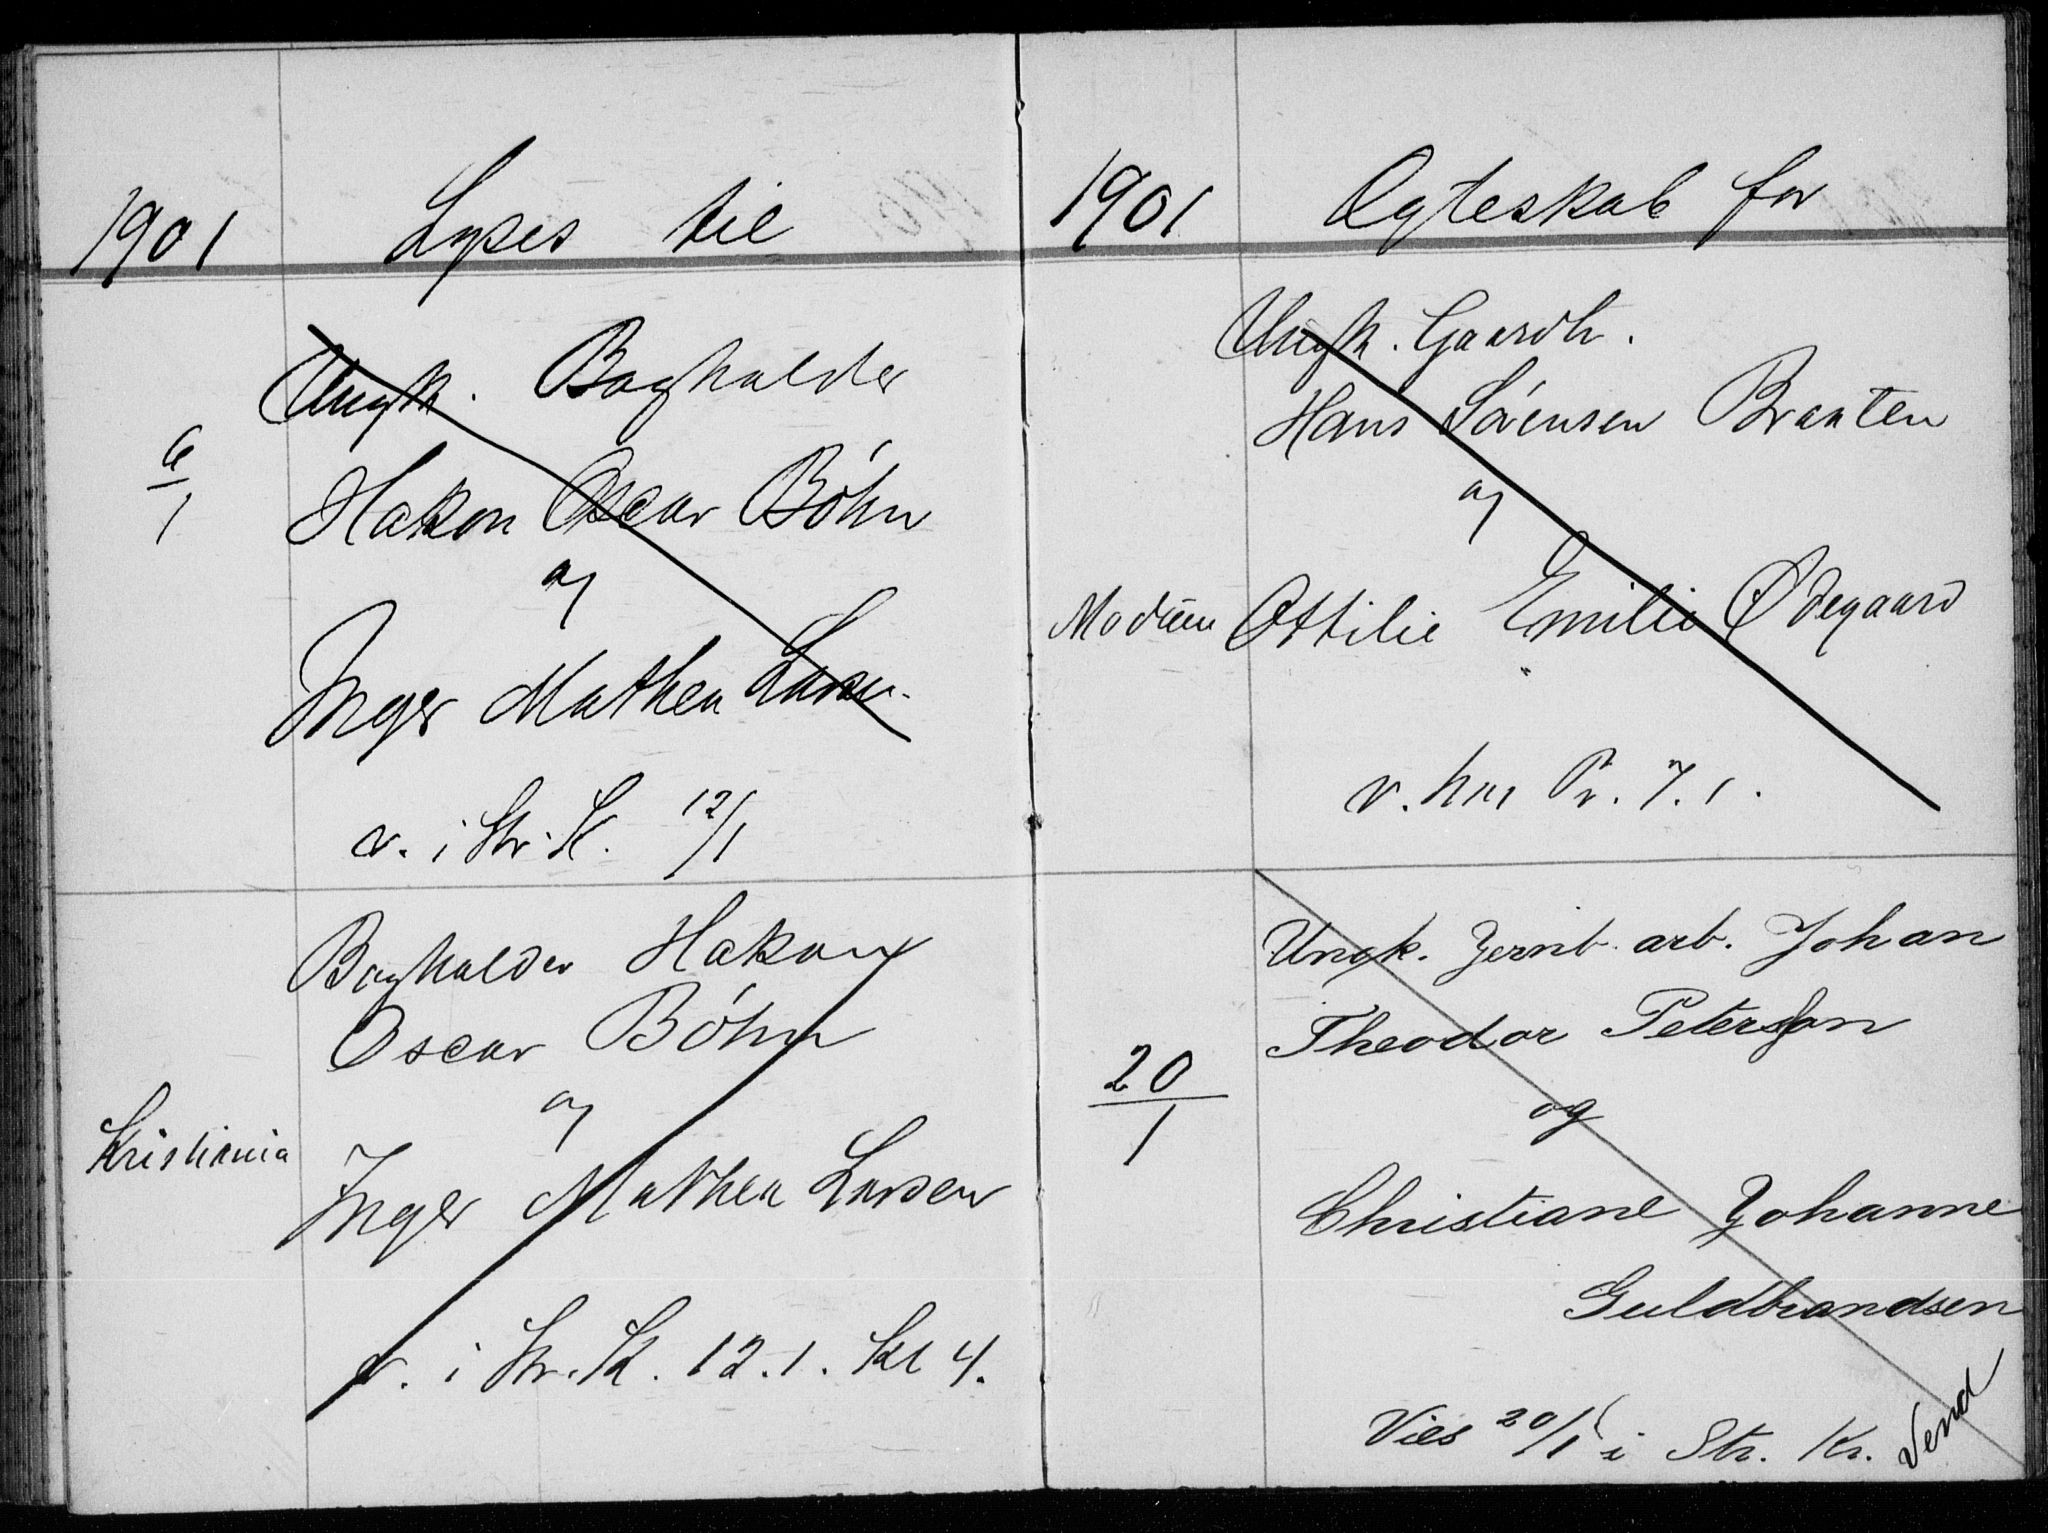 1901 Lyses til
Ungk. Boghalder
6/1
Hakon Oscar Böhn
og
Inger Mathea Larsen
v. i Str. K. 12/1
Boghalder Hakon
Oscar Böhn
og
Kristiania
Inger Mathea Larsen
v. i Str. K. 12.1. Kl 4.
1901 Ægteskab for
Ungk. Gaardb.
Hans Sörensen Braaten
og
Modum Ottilie Emilie Ödegaard
v. hos Pr. 7.1.
Ungk. Jernb. arb. Johan
Theodor Petersson
20/1
og
Christiane Johanne
Guldbrandsen
Vies 20/1 i Str. Kr.
Vend